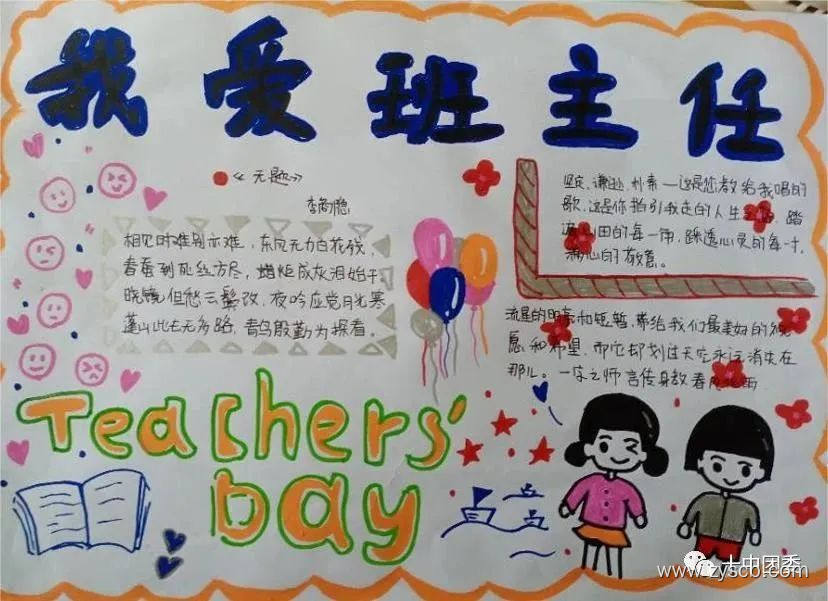 我爱班主任
《无题》
李商隐
相见时难别亦难,东风无力百花残,
春蚕到死丝方尽,蜡炬成灰泪始干。
晓镜但愁云鬓改,夜吟应觉月光寒
蓬山此去无多路,青鸟殷勤为探看。
坚定、谦逊、朴素—这是您教给我唱的
歌,这是你指引我走的人生 路,踏
遍心田的每一角,踩透心灵的每一寸,
满心的敬意。
流星的明亮和短暂,带给我们最美好的祝
愿和希望,而它却划过天空永远消失在
那儿。一字之师 言传身教 春风化雨
Teachers'
Day
十中团委